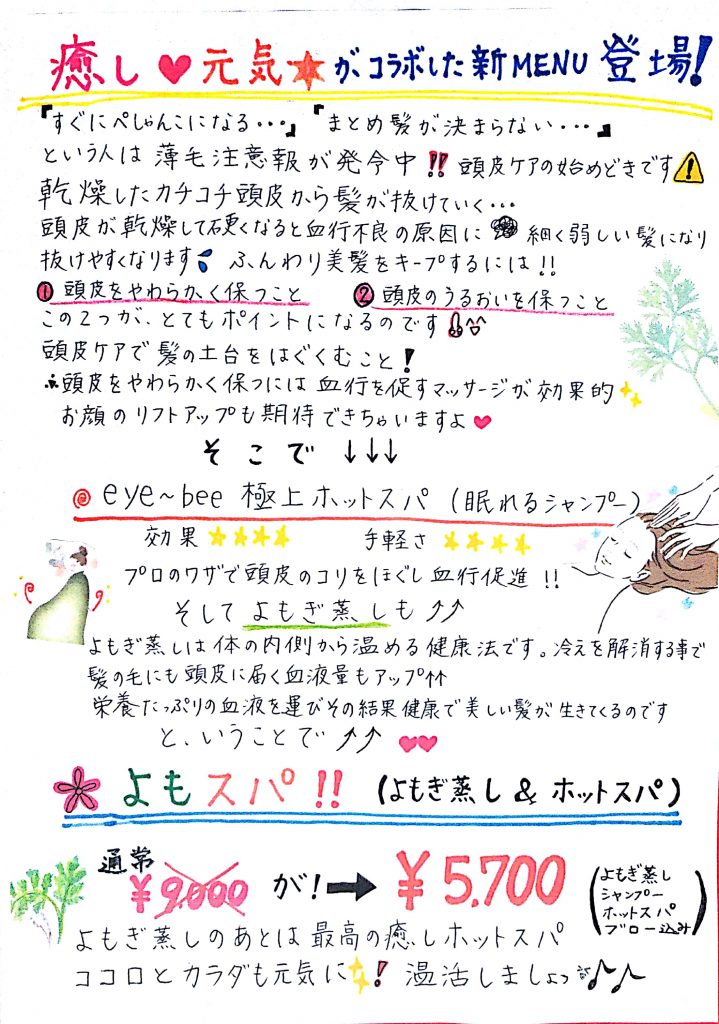 癒し♥元気★がコラボした新MENU登場!
『すぐにぺしゃんこになる・・・』『まとめ髪が決まらない・・・』
という人は薄毛注意報が発令中!!頭皮ケアの始めどきです⚠
乾燥したカチコチ頭皮から髪が抜けていく・・・
頭皮が乾燥して硬くなると血行不良の原因に 細く弱しい髪になり
抜けやすくなります ふんわり美髪をキープするには!!
❶頭皮をやわらかく保つこと ❷頭皮のうるおいを保つこと
この2つが、とてもポイントになるのです
頭皮ケアで髪の土台をはぐくむこと!
∴頭皮をやわらかく保つには血行を促すマッサージが効果的
お顔のリフトアップも期待できちゃいますよ♥
そこで↓↓↓
eye~bee 極上ホットスパ(眠れるシャンプー)
効果★★★★ 手軽さ★★★★
プロのワザで頭皮のコリをほぐし血行促進!!
そしてよもぎ蒸しも↑↑
よもぎ蒸しは体の内側から温める健康法です。冷えを解消する事で
髪の毛にも頭皮に届く血液量もアップ↑↑
栄養たっぷりの血液を運びその結果健康で美しい髪が生きてくるのです
と、いうことで↑↑ ♥♥
よもスパ!!(よもぎ蒸し&ホットスパ)
通常
¥9.000が!→¥5.700
(よもぎ蒸し
シャンプー
ホットスパ
ブロー込み)
よもぎ蒸しのあとは最高の癒しホットスパ
ココロとカラダも元気に!温活しましょっ♪♪